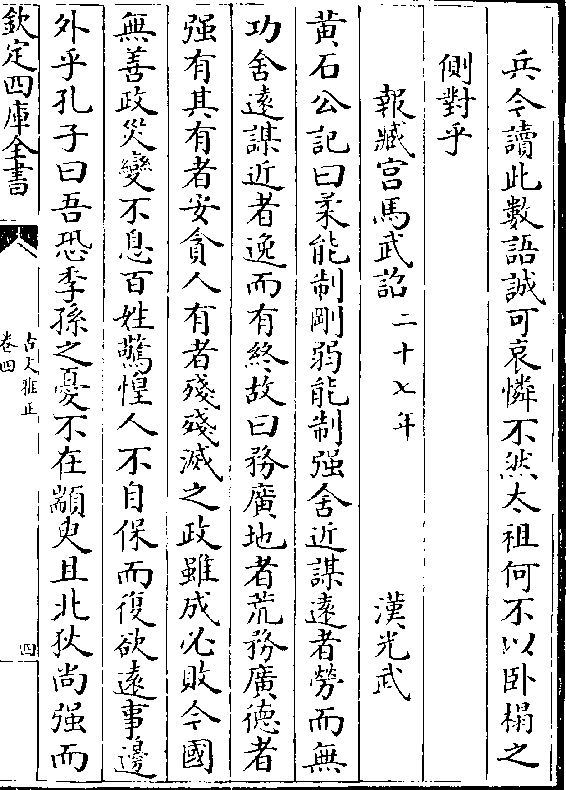 兵今讀此數語誠可哀憐不然太祖何不以卧榻之
側對乎
報臧宫馬武詔二十七年 漢光武
黄石公記曰柔能制剛弱能制强舍近謀遠者勞而無
功舍遠謀近者逸而有終故曰務廣地者荒務廣德者
强有其有者安貪人有者殘殘滅之政雖成必敗今國
無善政災變不息百姓驚惶人不自保而復欲遠事邊
外乎孔子曰吾恐季孫之憂不在顓臾且北狄尚强而
欽定四庫全書
古文雅正
卷四
四